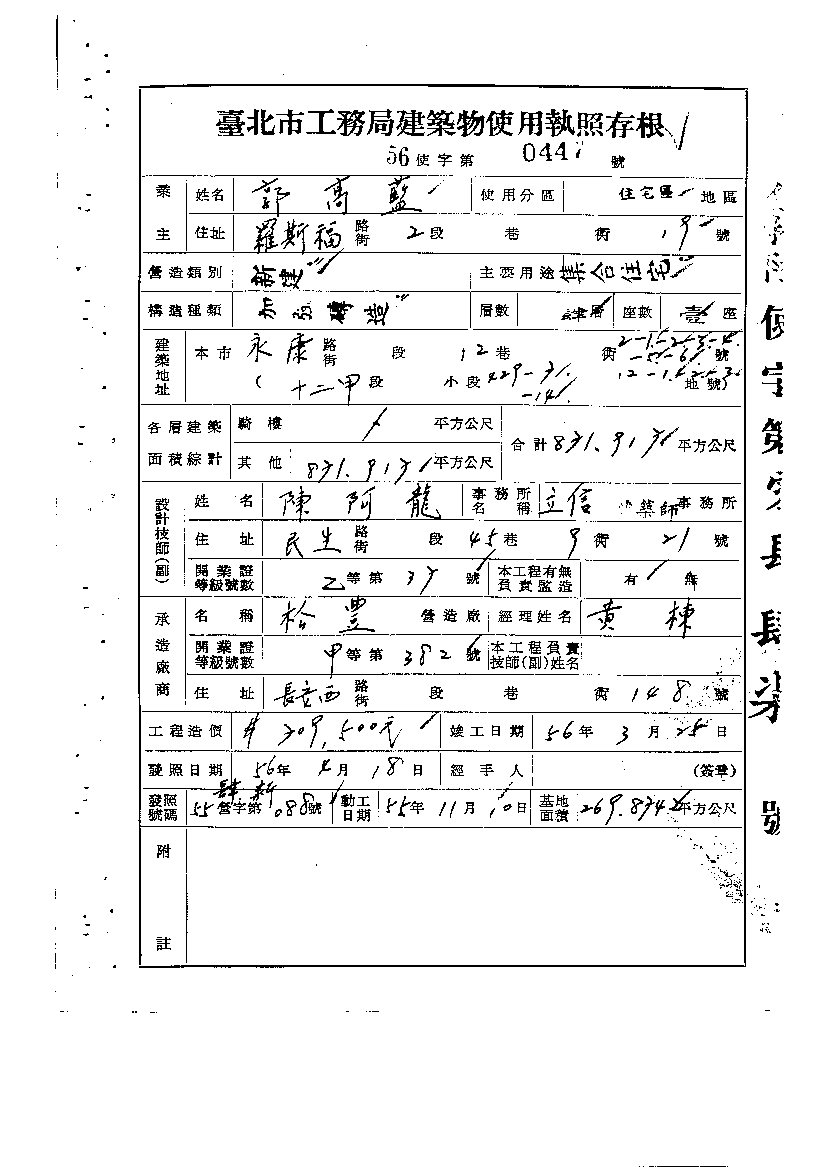 臺北市工務局建築物使用執照存根
56使字第 0447 號
業主 姓名 郭高藍 使用分區 住宅區 地區
住址 羅斯福 路街 2段 巷 衖 19號
營造類別 新建 主要用途 集合住宅
構造種類 加強磚造 層數 肆層 座數 壹座
建築地址 本市 永康 路街 段 12巷 衖 號
( 十二甲段 小段 地號)
各層建築面積綜計 騎樓 平方公尺 合計 平方公尺
其他 平方公尺
設計技師(副) 姓名 陳阿龍 事務所名稱 立信 築師事務所
住址 民生 路街 段 45巷 9衖 21號
開業證等級號數 乙等第37號 本工程有無負責監造 有 無
承造廠商 名稱 松豐 營造廠 經理姓名 黃棟
開業證等級號數 甲等第382號 本工程負責技師(副)姓名
住址 長安西 路街 段 巷 衖 148號
工程造價 309,500元 竣工日期 56年3月25日
發照日期 56年4月18日 經手人 (簽章)
發照號碼 55營字第088號 動工日期 55年11月10日 基地面積 平方公尺
附註